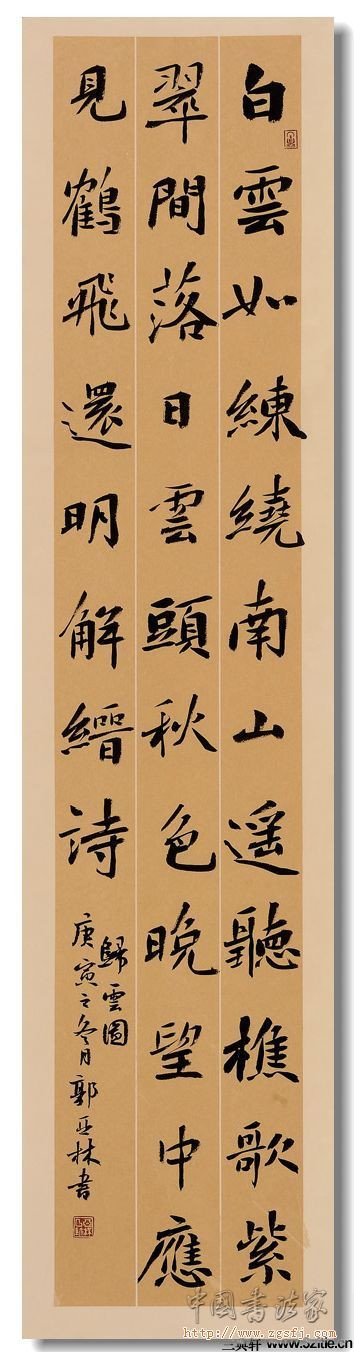 白雲如練繞南山遥聽樵歌紫
翠間落日雲頭秋色晚望中應
見鶴飛還明解縉詩
歸雲圖
庚寅之冬月郭正林書
中国书法家
http://www.zgsfj.com
三典轩 www.32tide.cn